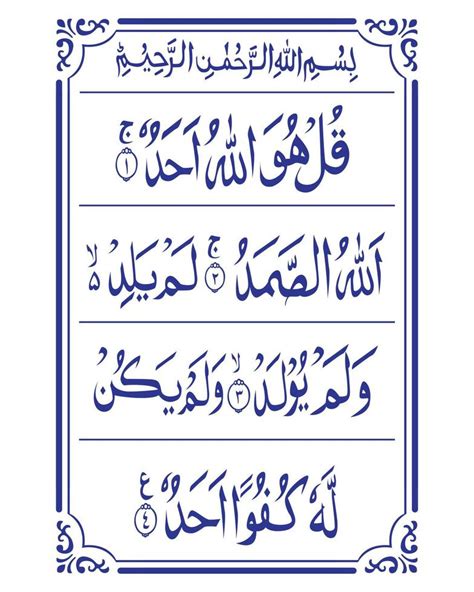 بِسْمِ اللهِ الرَّحْمٰنِ الرَّحِيْمِ
قُلْ هُوَ اللهُ اَحَدٌ ۚ ﴿١﴾
اَللهُ الصَّمَدُ ۚ ﴿٢﴾ لَمْ يَلِدْ ۙ ۵
وَلَمْ يُوْلَدْ ۙ ﴿٣﴾ وَلَمْ يَكُنْ
لَّهٗ كُفُوًا اَحَدٌ ﴿٤﴾ ع